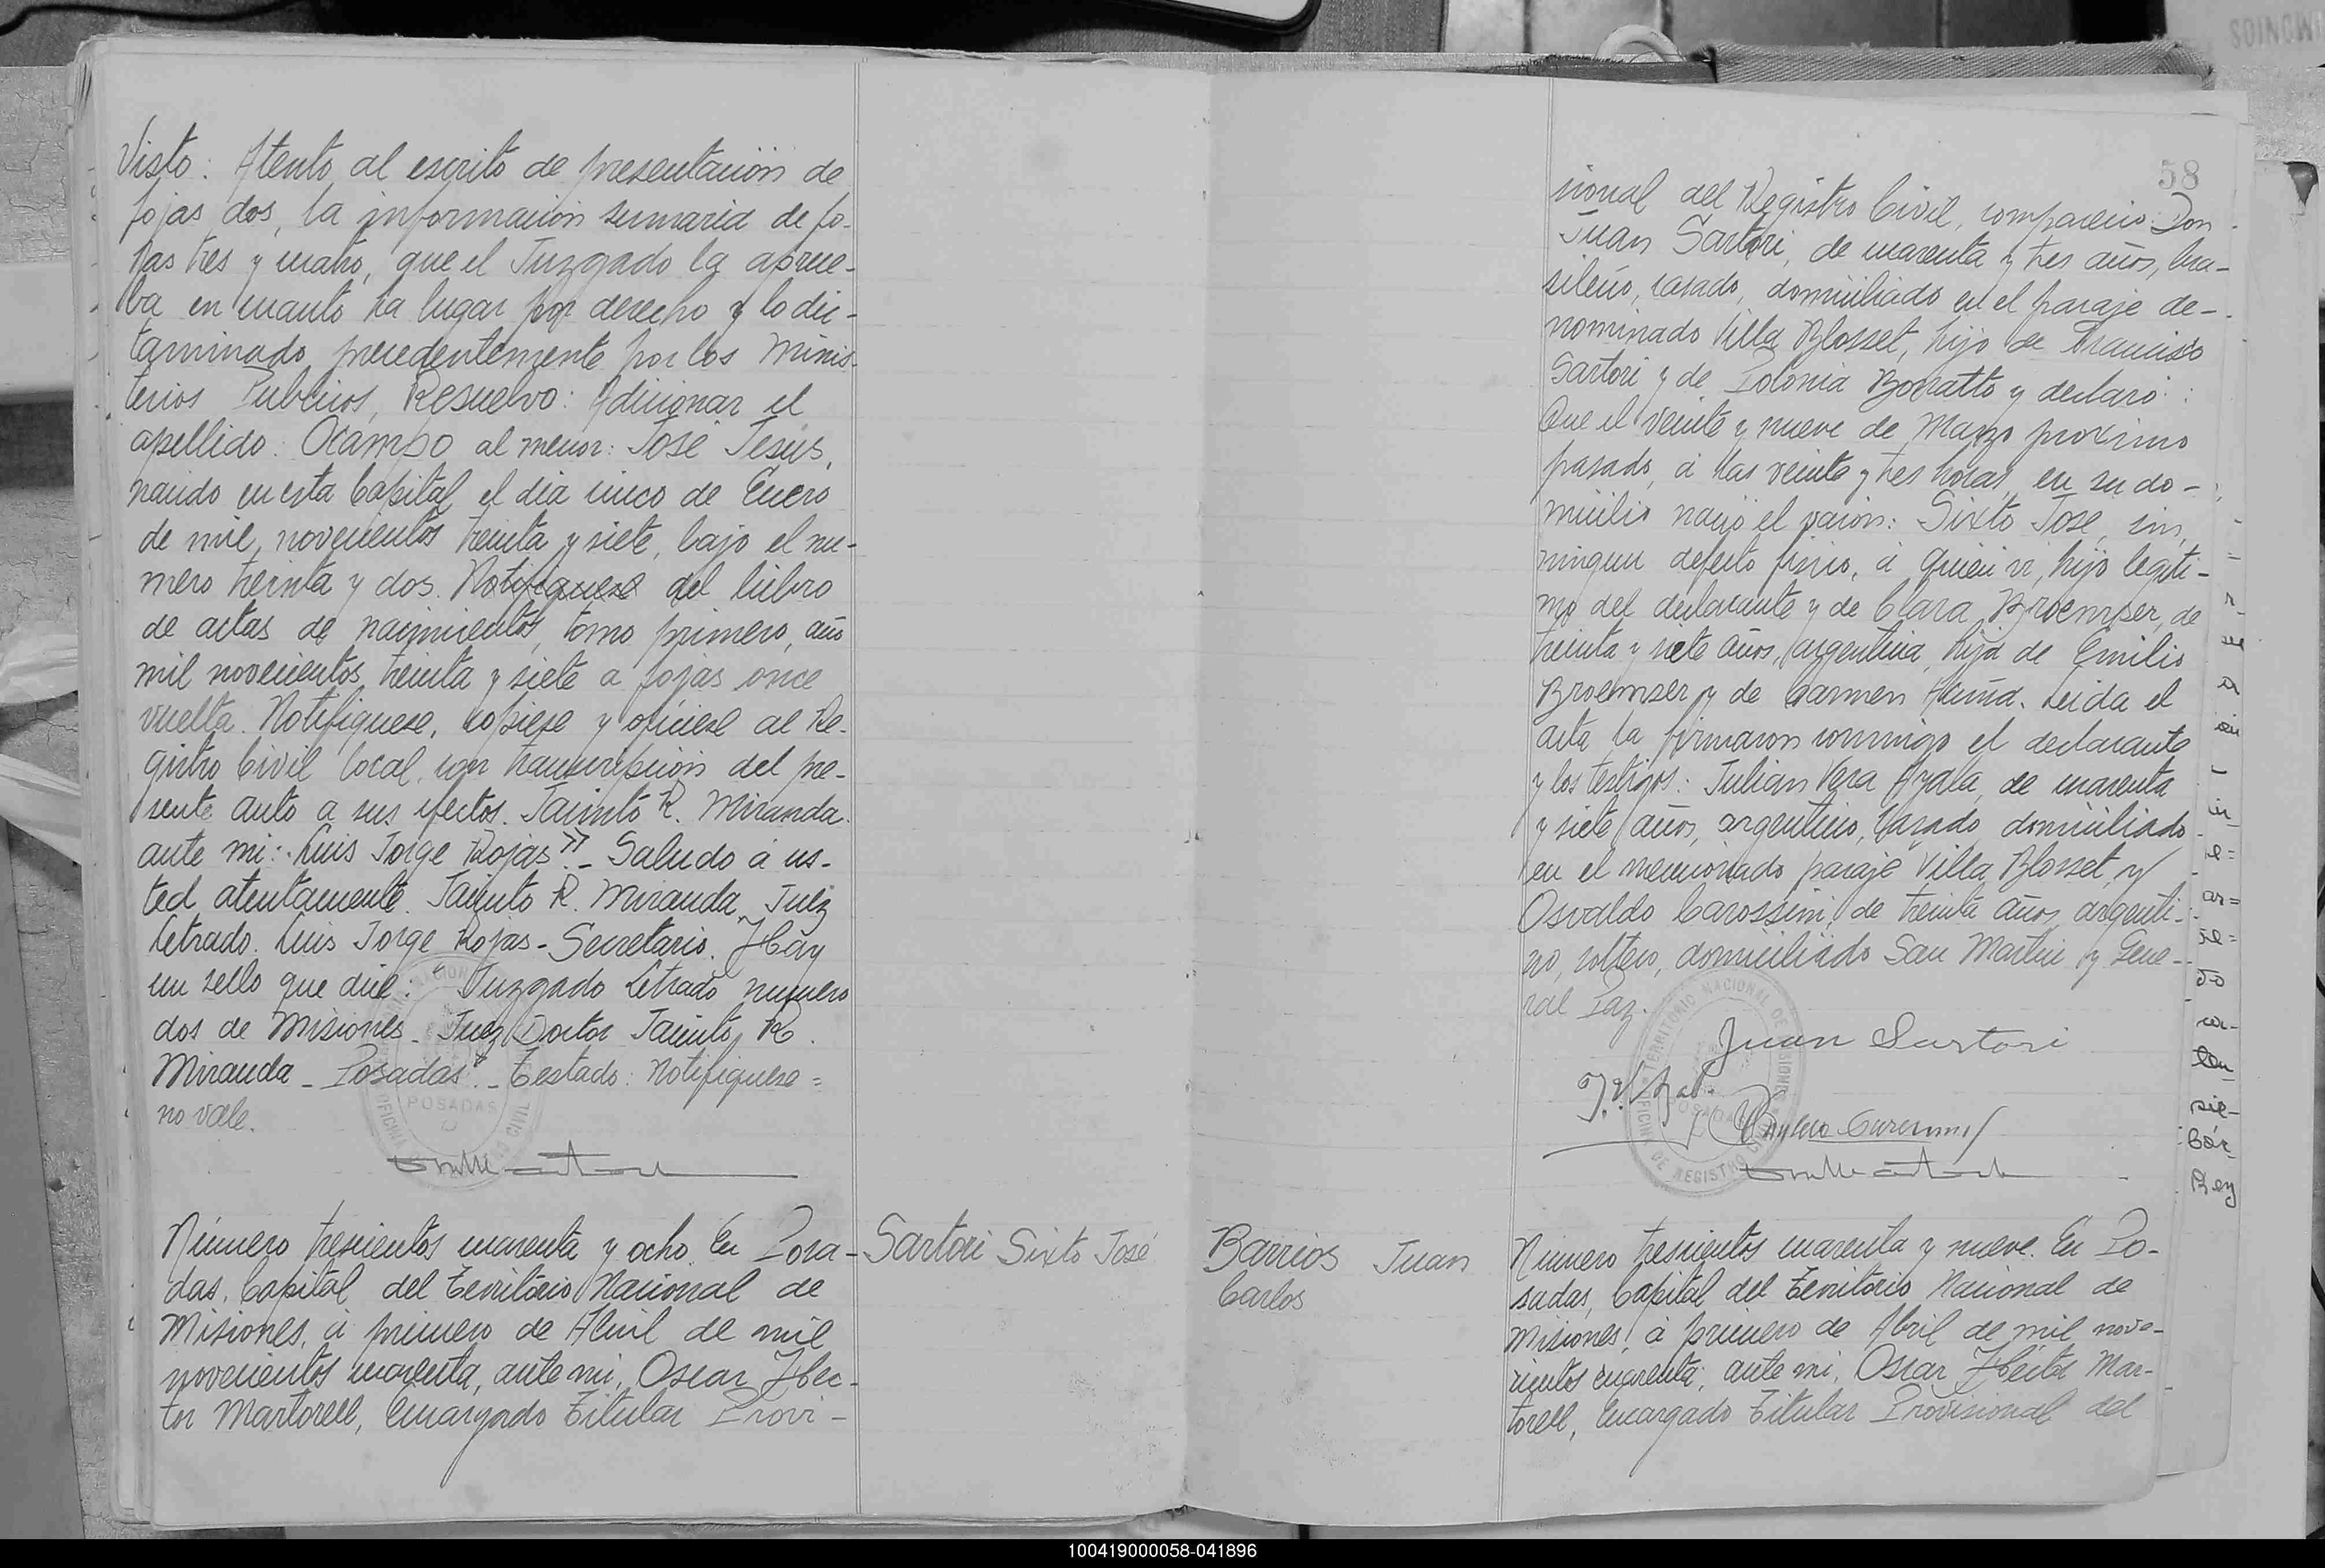 Visto: Atento al escrito de presentación de
fojas dos, la información sumaria de fo-
jas tres y cuatro, que el Juzgado la aprue-
ba en cuanto ha lugar por derecho y lo dic-
taminado precedentemente por los Minis-
terios Publicos, Resuelvo: Adicionar el
apellido: Ocampo al menor: José Jesús,
nacido en esta Capital el dia cinco de Enero
de mil novecientos treinta y siete, bajo el nu-
mero treinta y dos. Notifiquese del libro
de actas de nacimientos, tomo primero, año
mil novecientos treinta y siete a fojas once
vuelta. Notifiquese, copiese y oficiese al Re-
gistro Civil local, con transcripción del pre-
sente auto a sus efectos. Jacinto R. Miranda.
ante mi: Luis Jorge Rojas". - Saludo á us-
ted atentamente. Jacinto R. Miranda, Juez
Letrado. Luis Jorge Rojas - Secretario. Hay
un sello que dice: "Juzgado Letrado numero
dos de Misiones - Juez Doctor Jacinto R.
Miranda - Posadas". - Testado: Notifiquese =
no vale.
POSADAS
Número trescientos cuarenta y ocho. En Posa-
das, Capital del Territorio Nacional de
Misiones, á primero de Abril de mil
novecientos cuarenta, ante mi, Oscar Hec-
tor Martorell, Encargado Titular Provi-
Sartori Sixto José
58
sional del Registro Civil, compareció: Don
Juan Sartori, de cuarenta y tres años, bra-
sileño, casado, domiciliado en el paraje de-
nominado Villa Blosset, hijo de Francisco
Sartori y de Polonia Borratto y declaró:
Que el veinte y nueve de Marzo proximo
pasado, á las veinte y tres horas, en su do-
micilio nació el varón: Sixto José, sin
ningun defecto fisico, á quien vi, hijo legiti-
mo del declarante y de Clara Broemser, de
treinta y siete años, argentina, hija de Emilio
Broemser y de Carmen Acuña. Leida el
acta la firmaron conmigo el declarante
y los testigos: Julian Vera Ayala, de cuarenta
y siete años, argentino, casado, domiciliado
en el mencionado paraje Villa Blosset, y
Osvaldo Carossini, de treinta años, argenti-
no, soltero, domiciliado San Martin y Gene-
ral Paz.
Juan Sartori
TERRITORIO NACIONAL DE MISIONES
POSADAS
OFICINA DE REGISTRO CIVIL
Barrios Juan
Carlos
Número trescientos cuarenta y nueve. En Po-
sadas, Capital del Territorio Nacional de
Misiones, á primero de Abril de mil nove-
cientos cuarenta, ante mi, Oscar Héctor Mar-
torell, Encargado Titular Provisional del
100419000058-041896